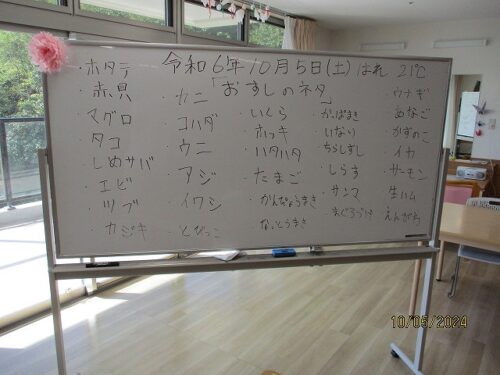 令和6年10月5日(土) はれ 21℃
「おすしのネタ」
・ホタテ
・赤貝
・マグロ
・タコ
・しめサバ
・エビ
・ツブ
・カジキ
・カニ
・コハダ
・ウニ
・アジ
・イワシ
・とびっこ
・いくら
・ホッキ
・ハタハタ
・たまご
・かんぴょうまき
・なっとうまき
・かっぱまき
・いなり
・ちらしずし
・しらす
・サンマ
・ウナギ
・あなご
・かずのこ
・イカ
・サーモン
・生ハム
・えんがわ
10/05/2024